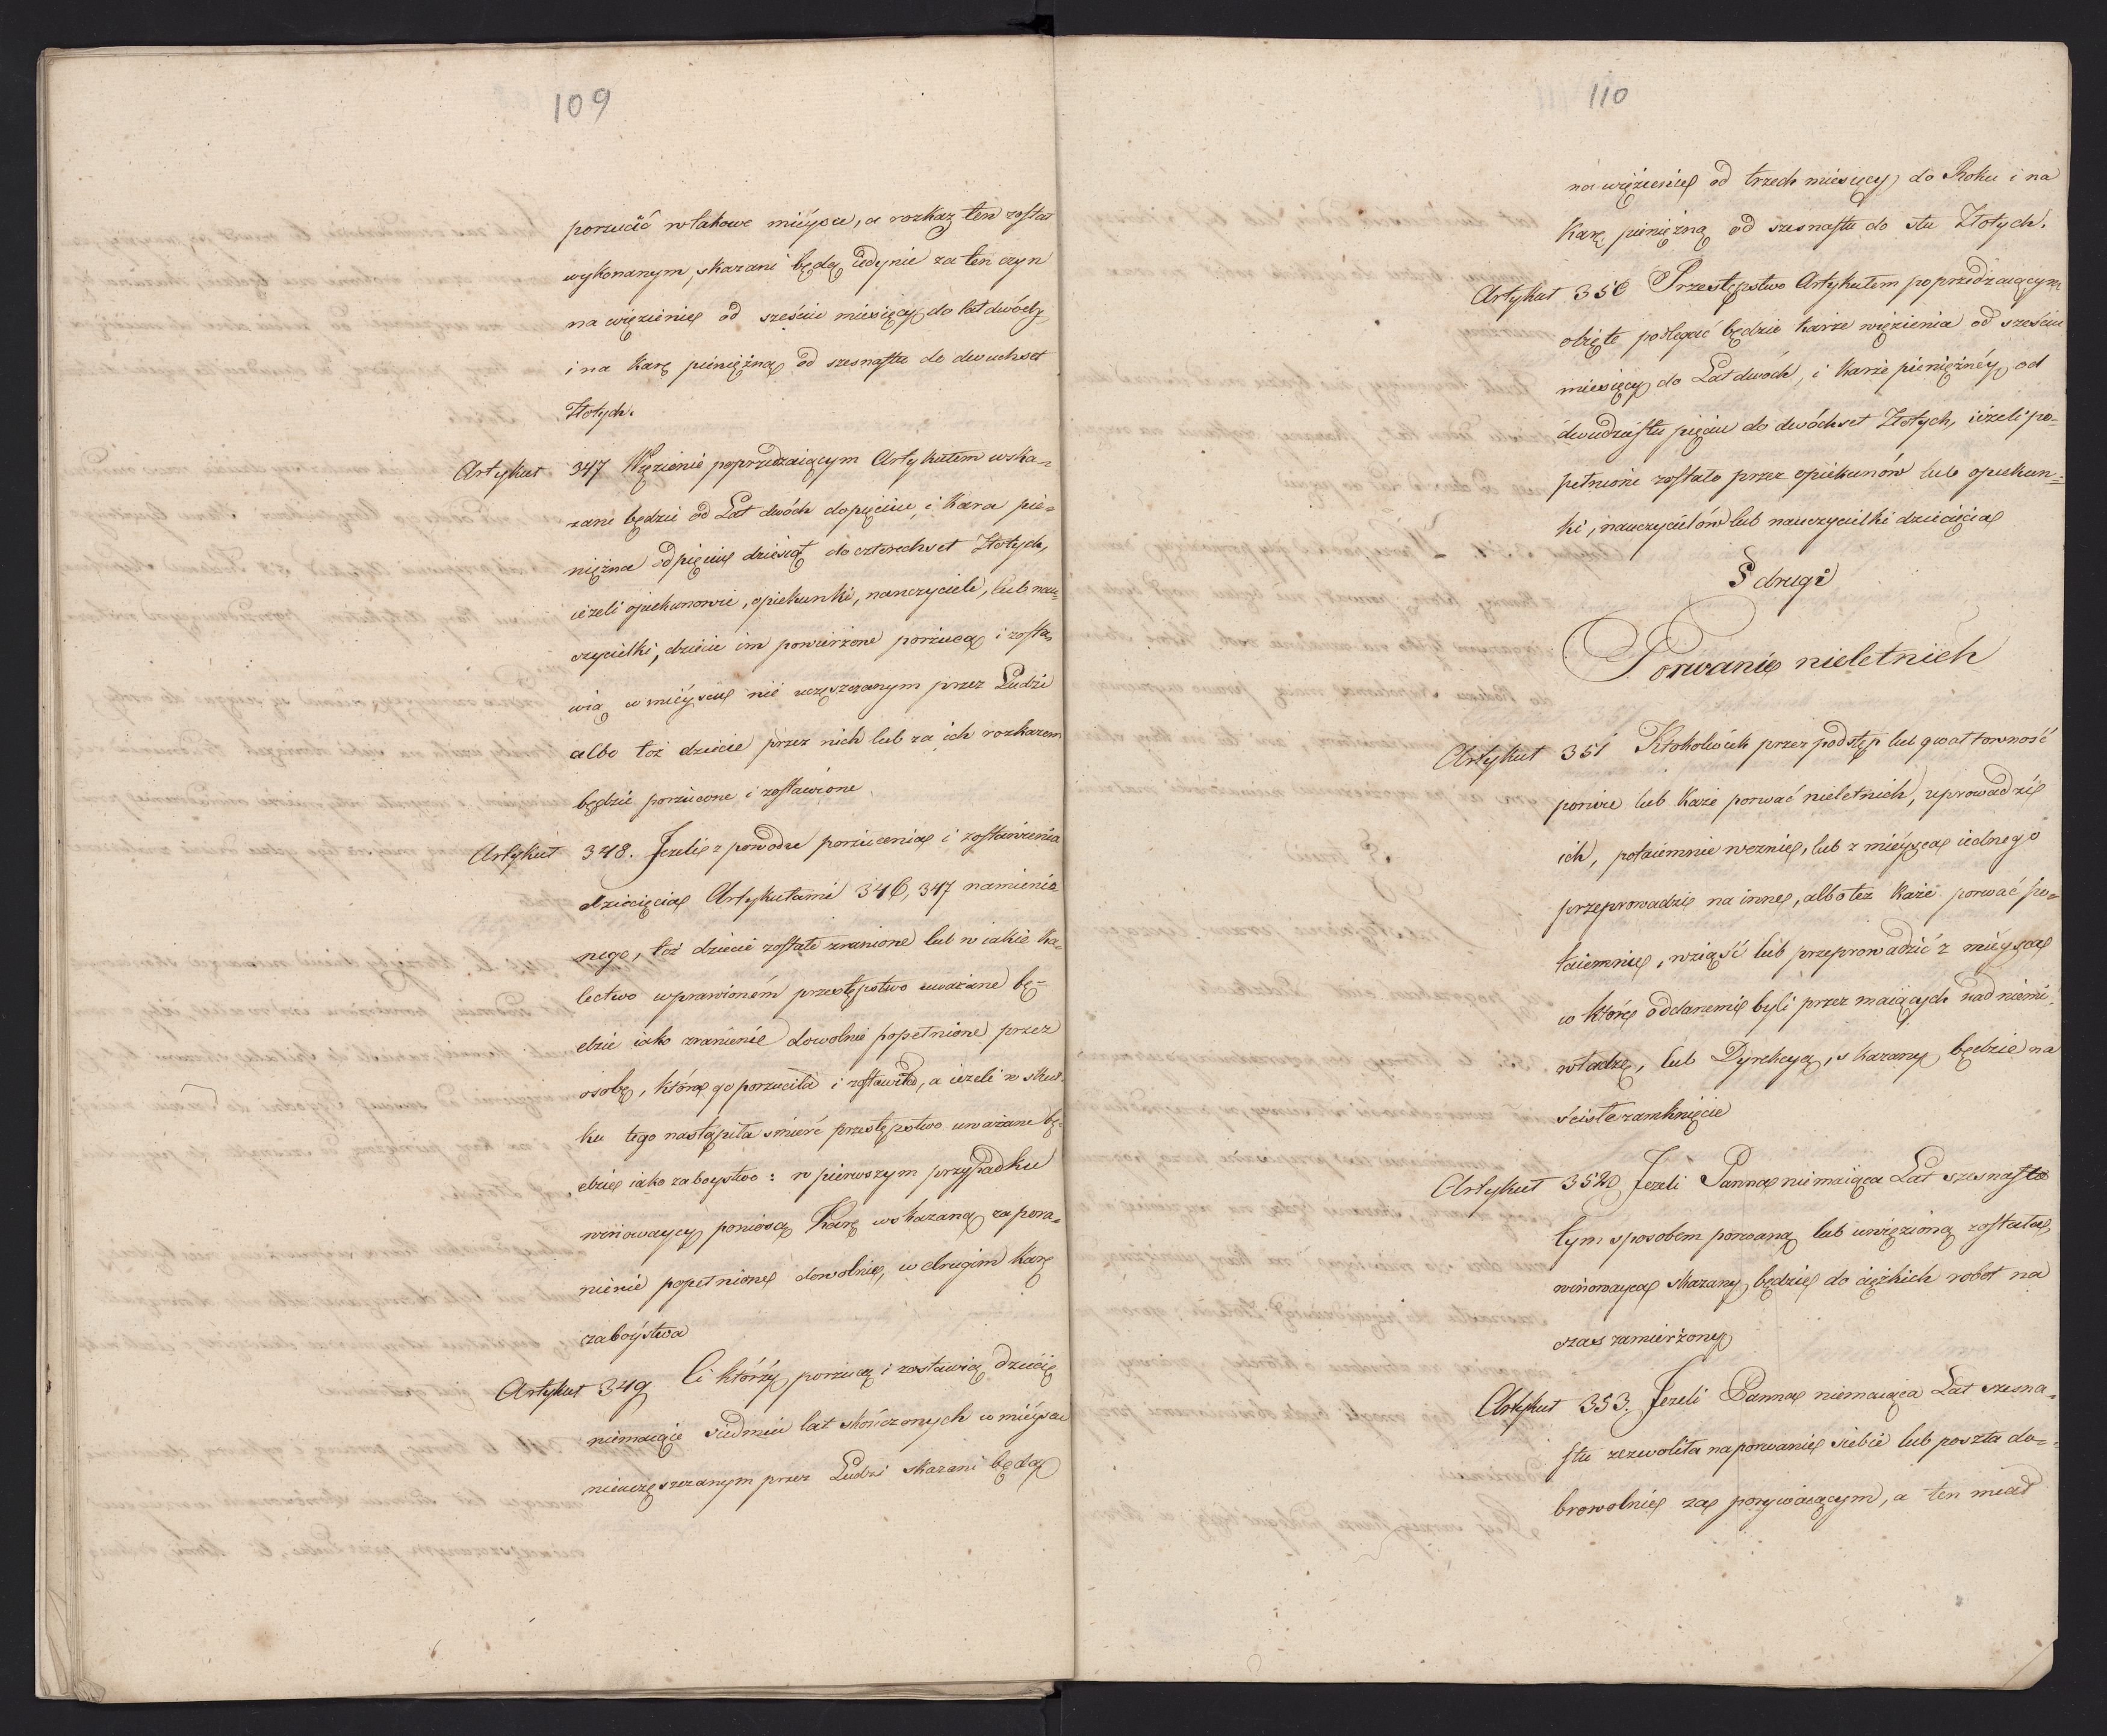 109
porzucić w takowe mieysce, a rozkaz ten został
wykonanym, skazani będą iedynie za ten czyn
na więzienie od sześciu miesięcy do lat dwóch
i na karę pieniężną od szesnastu do dwuchset
Złotych.
Artykuł 347 Więzienie poprzedzaiącym Artykułem wska=
zane będzie od Lat dwóch do pięciu, i Kara pie=
niężna od pięciu dziesiąt do czterechset Złotych,
ieżeli opiekunowie, opiekunki, nauczyciele, lub nau=
czycielki, dziecie im powierzone porzucą i zosta=
wią w mieyscu nie uczęszczanym przez Ludzi
albo toż dziecie przez nich lub za ich rozkazem
będzie porzucone i zostawione
Artykuł 348. Jeżeli z powodu porzucenia i zostawienia
dziecięcia Artykułami 346, 347 namienio
nego, toż dziecie zostało zranione lub w iakie ka=
lectwo wprawioném przestępstwo uważane bę=
dzie iako zranienie dowolnie popełnione przez
osobę, która go porzuciła i zostawiła, a ieżeli w skut
ku tego nastąpiła śmierć przestępstwo uważane bę=
dzie iako zaboystwo: w pierwszym przypadku
winowaycy poniosą Karę wskazaną za pora=
nienie popełnione dowolnie, w drugim karę
zaboystwa
Artykuł 349 Ci którzy porzucą i zostawią dziecię
niemaiące siedmiu lat skończonych w mieyscu
nieuczęszczanym przez Ludzi skazani będą
110
na więzienie od trzech miesięcy do Roku i na
Karę pieniężną od szesnastu do stu Złotych.
Artykuł 350 Przestępstwo Artykułem poprzedzaiącym
obięte podlegać będzie karze więzienia od sześciu
miesięcy do Lat dwóch, i karze pieniężnéy od
dwudziestu pięciu do dwóchset Złotych, ieżeli po=
pełnione zostało przez opiekunów lub opiekun=
ki, nauczycielów lub nauczycielki dziecięcia
§ drugi
Porwanie nieletnich
Artykuł 351 Ktokolwiek przez podstęp lub gwałtowność
porwie lub każe porwać nieletnich, uprowadzie
ich, potaiemnie weźnie, lub z mieysca iednego
przeprowadzi na inne, albo też każe porwać po=
taiemnie, wziąść lub przeprowadzić z mieysca
w które oddanemi byli przez maiących nad niemi
władzę, lub Dyrekcyą, skazany będzie na
ścisłe zamknięcie
Artykuł 352 Jeżeli Panna niemaiąca Lat szesnastu
tym sposobem porwaną lub uwięzioną została,
winowayca skazany będzie do ciężkich robot na
czas zamierzony
Artykuł 353. Jeżeli Panna niemaiąca Lat szesna=
stu zezwoliła na porwanie siebie lub poszła do=
browolnie za porywaiącym, a ten miał